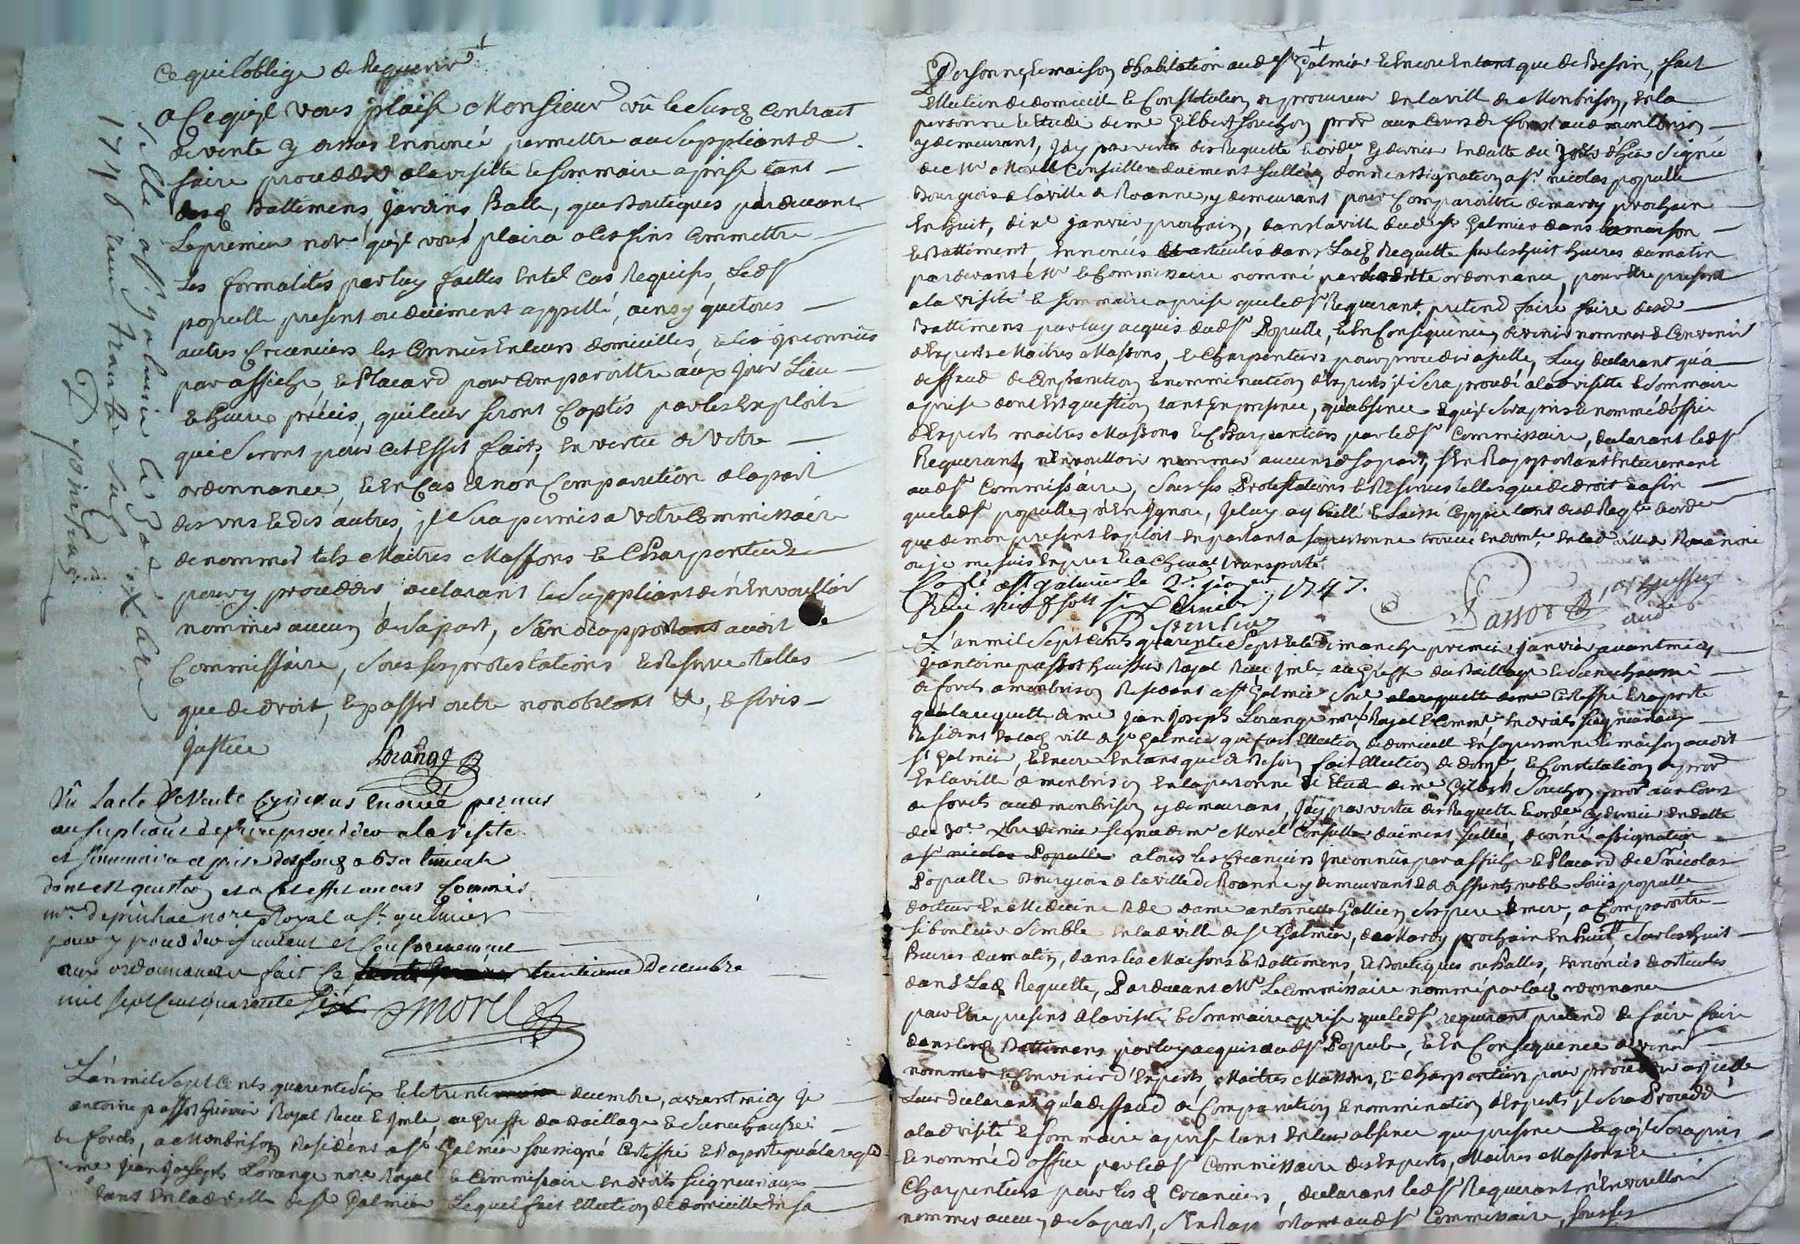 ce qui l'oblige de Requerir
a ce qu'jl vous plaise Monsieur vû le susd contrait
de vente cy dessus Ennoncé permettre au suppliant de
faire proceder a la visitte & sommaire aprise tant
desd Battimens, jardins, Balle, que Boutiques pardevant
Le premier nore qu'jl vous plaira a ces fins Commettre
Les formalités par luy faittes En tel cas Requises, Led sr
populle present ou deuëment appellé, ainsy que tous
autres Creanciers les Connus En leurs domicilles, & les jnconnus
par affiche & Placard pour Comparoittre aux jour Lieu
& heure précis, qui leur seront Cottés par les Exploits
qui seront pour cet Effet faits, En vertu de Votre
ordonnance, & En Cas de non Comparution de la part
des uns & des autres, jl sera permis a Votre Commissaire
de nommer tels Maitres Massons & Charpentiers
pour y proceder declarant le suppliant n'En vouloir
nommer aucun de sa part, s'En Rapportant audit
Commissaire, sous ses protestations & Reserve telles
que de droit, & passer outre nonobstant &c, & ferés
justice Lorange
Vû Lacte De Vente Cy dessus Enoncé permis
au supliant de faire proceder a la Visite
et sommaire aprise des fonds & batiments
dont est question et a cet effet avons Commis
mre depinhac nore Royal a st galmier
pour y proceder suivant et conformement
aux ordonnances fait ce trentieme Decembre
mil sept cent quarente six Morel
L'an mil sept cents quarente six & le trente decembre, avant midy je
antoine passot huissier Royal Receu & jmle au greffe du Baillage & Senechaussée
de forêts, a Monbrison Resident a st Galmier soussigné Certiffie & Raporte qu'a la reqte
de me jean joseph Lorange nore Royal & Commissaire en droits seigneuriaux
Residant En lad ville de st Galmier Lequel fait Ellection de domicille En sa
ville de st galmier le 30e Xbre
1746 Receu trante six s
Depinhac
Personne, & maison d'habitation aud st Galmier & Encore En tant que de Besoin, fait
Ellection de domicille & Constitution de procureur En la ville de Monbrison, En la
personne & Etude de me Gilbert Souchon procr aux Cours de forest aud monbrison
y demeurant, jay par vertu des Requette & ordce cy dernier En datte du jour d'hier signée
de Mr Morel Conseiller deuëment sellée, donné assignation a sr nicolas populle
Bourgeois de la ville de Roanne y demeurant pour Comparoittre de mardy prochain
En huit, dixe janvier prochain, dans la ville dud st Galmier dans la maison
& Battiment, Ennoncés & articulés dans Lad Requette sur les huit heures du matin
pardevant Mr le Commissaire nommé par ladite ordonnance, pour Etre present
a la Visitte & sommaire aprise que led sr Requerant, pretend faire faire desd
Battimens par luy acquis dud sr Populle, & En Consequence, de venir nommer & Convenir
d'Experts Maitres Massons, & Charpentiers pour proceder a jcelle, Luy declarant qu'a
deffaud de Comparution & nommination d'Experts jl sera procedé a lad visitte & sommaire
aprise dont Est question tant En presence, qu'absence & qu'jl sera pris & nommé d'office
d'Experts maitres Massons & Charpentiers par led sr Commissaire, declarant led sr
Requerant, n'En vouloir nommer aucun de sa part, s'En Rapportant Entierement
aud sr Commissaire, sous ses Protestations & Reserves telles que de droit a a fin
que led sr populle, n'En jgnore, je luy ay Baillé & Laissé Coppie tant desd Reqte & ordce
que de mon present Exploit En parlant a sa personne trouvé En domle En lad ville de Roanne
ou je me suis Exprés & a cheval transporté.
Conlé a st galmier le 2e janer 1747.
Receu neuf sols six deniers
Depinhac
Passot
L'an mil sept cents quarente sept & le dimanche premier janvier avant midy
je antoine passot huissier Royal Receu jmle au greffe du Baillage & Senechaussée
de forêts a monbrison Resident a st Galmier Certiffie & raporte
qu'a la requette de me jean joseph Lorange nore Royal & Commre En droits seigneuriaux
Resident En lad ville de st Galmier qui fait Ellection de domicille En sa personne & maison audit
st Galmier, & Encore En tant que de Besoin fait Ellection de domle, & Constitution de procr
En la ville de monbrison En la personne & Etude de me Gilbert Souchon procr aux Cours
de forêts aud monbrison y demeurant, jay par vertu des Requette & ordce cy dernier En datte
du 30e Xbre dernier signée de Mr Morel Conseiller deuëment sellée, donné assignation
a sr nicolas Populle a tous les Creanciers jnconnus par affiche & Placard de sr nicolas
Populle Bourgeois de la ville de Roanne y demeurant & de deffunts noble Louis populle
docteur En Medecine & de dame antoinette Gallien ses pere & mere, a Comparoitre
si bon leur semble En lad ville de st Galmier, de Mardy prochain En huit sur les huit
heures du matin, dans les Maisons & Battimens, & Boutiques ou Balles, Ennoncés & articulés
dans Lad Requette, Pardevant Mr Le Commissaire nommé par lad ordonnance
pour Etre presens a la visitte & sommaire aprise que led sr requerant pretend de faire faire
dans lesd Battimens par luy acquis dud sr Popule, & En Consequence de venir
nommer & Convenir d'Experts Maitres Massons, & Charpentiers pour proceder a jcelle
Leur declarant qu'a deffaud de Comparution & nommination d'Experts jl sera Procedé
a lad visitte & sommaire aprise tant En leur absence que presence & qu'jl sera pris
& nommé d'office par led sr Commissaire des Experts, Maitres Massons &
Charpentiers pour lesd Creanciers, declarant led sr Requerant n'En vouloir
nommer aucun de sa part, s'En Raportant aud sr Commissaire, sous ses